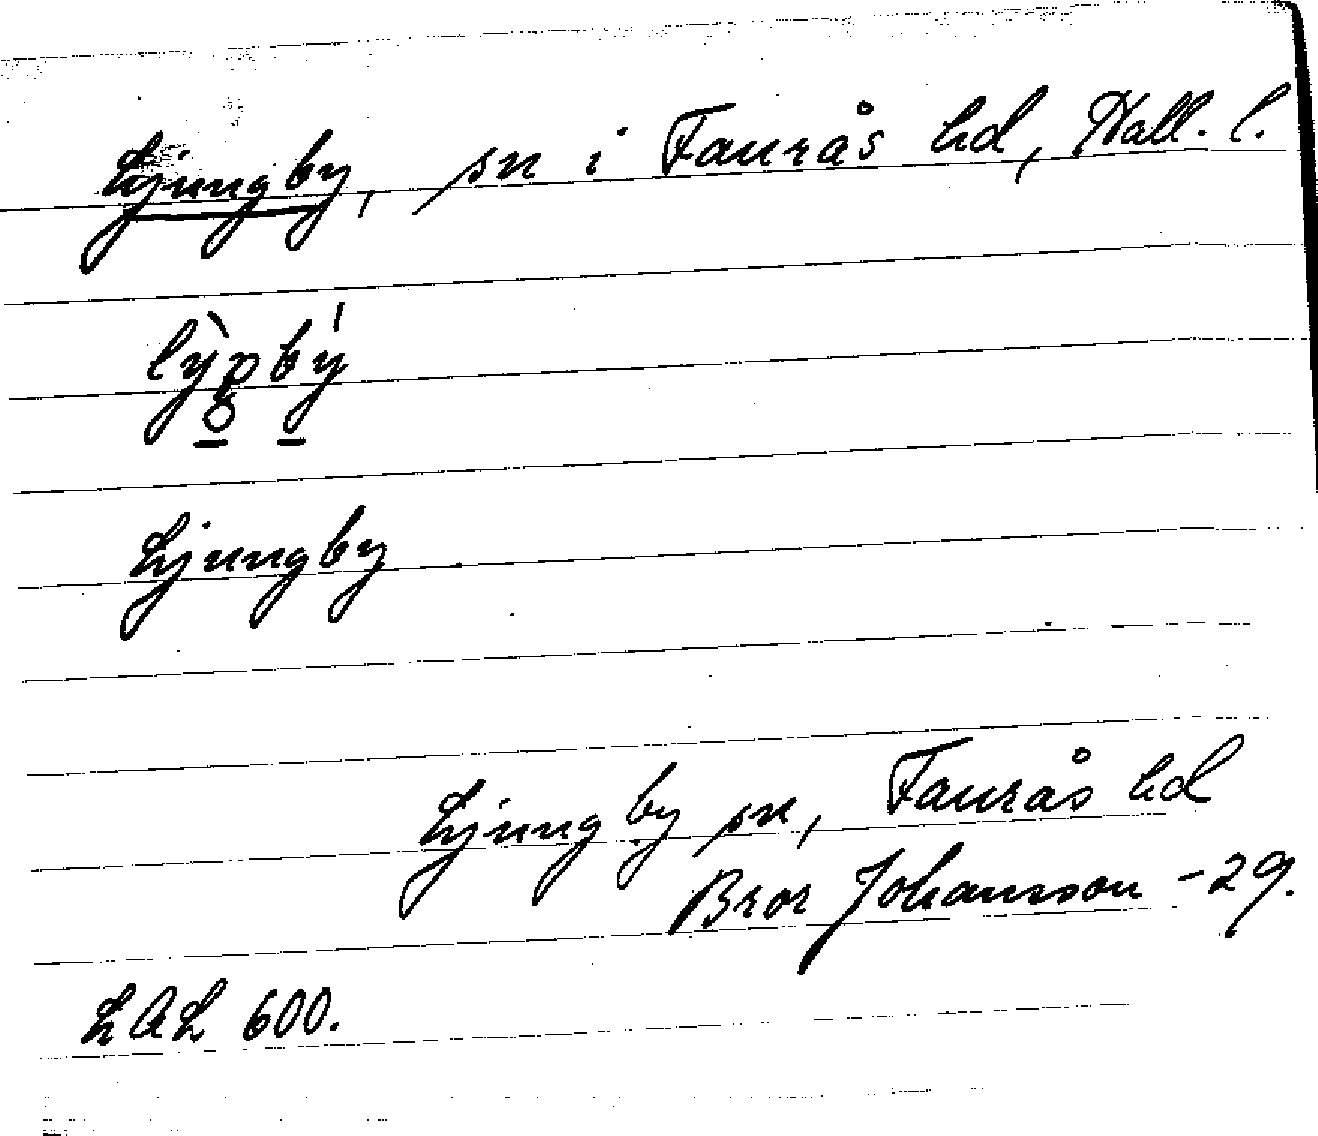 Ljungby, sn i Faurås hd, Hall. l.
Ljungby
Ljungby sn, Faurås hd
Bror Johansson -29.
LAL 600.